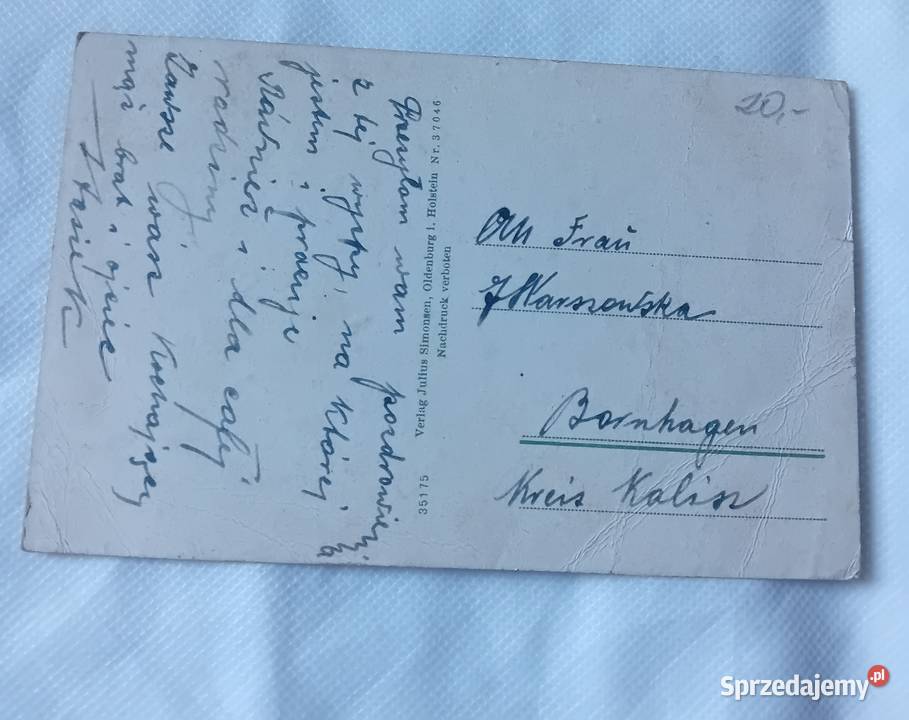 20,-
Przesyłam wam pozdrowień
z tej wyspy, na Której
jestem i pracuje
Również i dla całej
rodziny.
Zawsze wasz Kochający
mąż brat i ojciec
Stasiek
35175 Verlag Julius Simonsen, Oldenburg i. Holstein Nr. 37046
Nachdruck verboten
An Frau
J Warszawska
Bornhagen
Kreis Kalisz
Sprzedajemy.pl